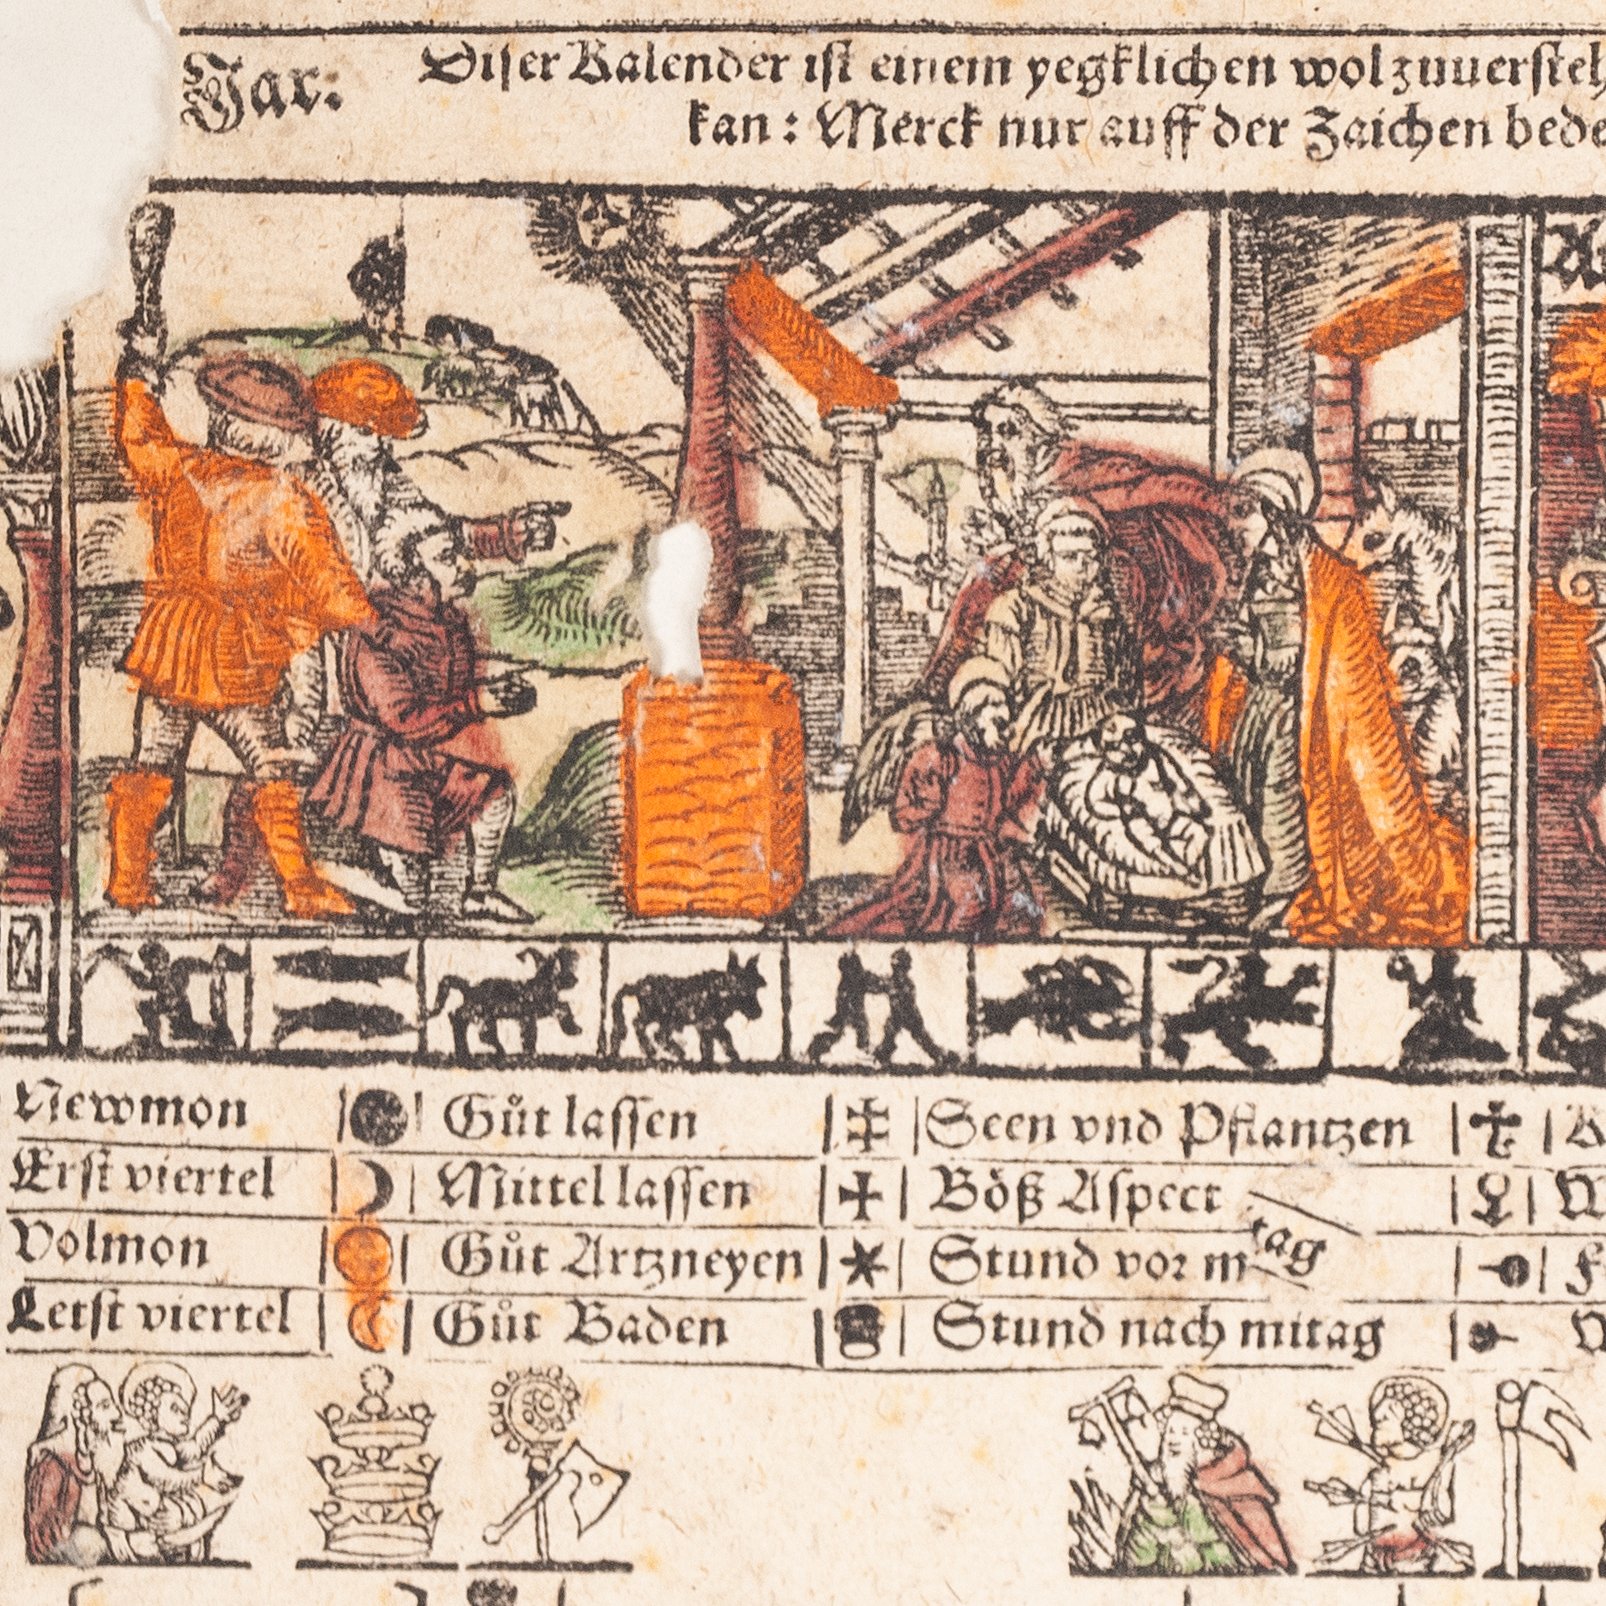 Jar:
Diser Kalender ist einem yegklichen wol zuuersteh
kan: Merck nur auff der Zaichen bede
Newmon Gůt lassen Seen vnd Pflantzen
Erst viertel Mittel lassen Böß Aspect
Volmon Gůt Artzneyen Stund vor mitag
Letst viertel Gůt Baden Stund nach mitag